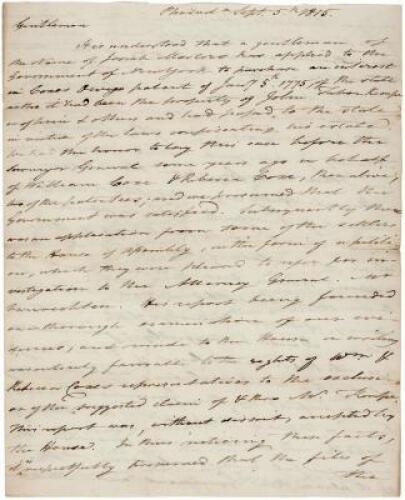 Philad a Sept. 5th 1815.
Gentlemen
It is understood that a gentleman of
the name of Josiah Masters has applied to the
Government of New York to purchase an interest
in Coxes Oweys patent of Jany 5th 1775 of the state
as tho it had been the property of John Tabor Kempe
& others and had passed to the state
in virtue of the laws confiscating his estate.
had the honor to lay this case before the
Surveyor General some years ago on behalf
of William Coxe & Rebecca Coxe,
of the patentees; and we presumed that the
Government was satisfied. Subsequently there
was an application from some of the settlers
to the House of Assembly, in the form of a petiti-
on, which they were pleased to refer for in-
vestigation to the Attorney General
His report being founded
on a thorough examination of our evi-
dences, and made to the House in writing
favorable to the rights of Wm &
Rebecca Coxes representatives to the exclusi-
on of the suggested claim of Mr. Kempe,
This report was, without dissent, accepted by
the House. In thus noticing these facts,
respectfully presumed that the files of
the